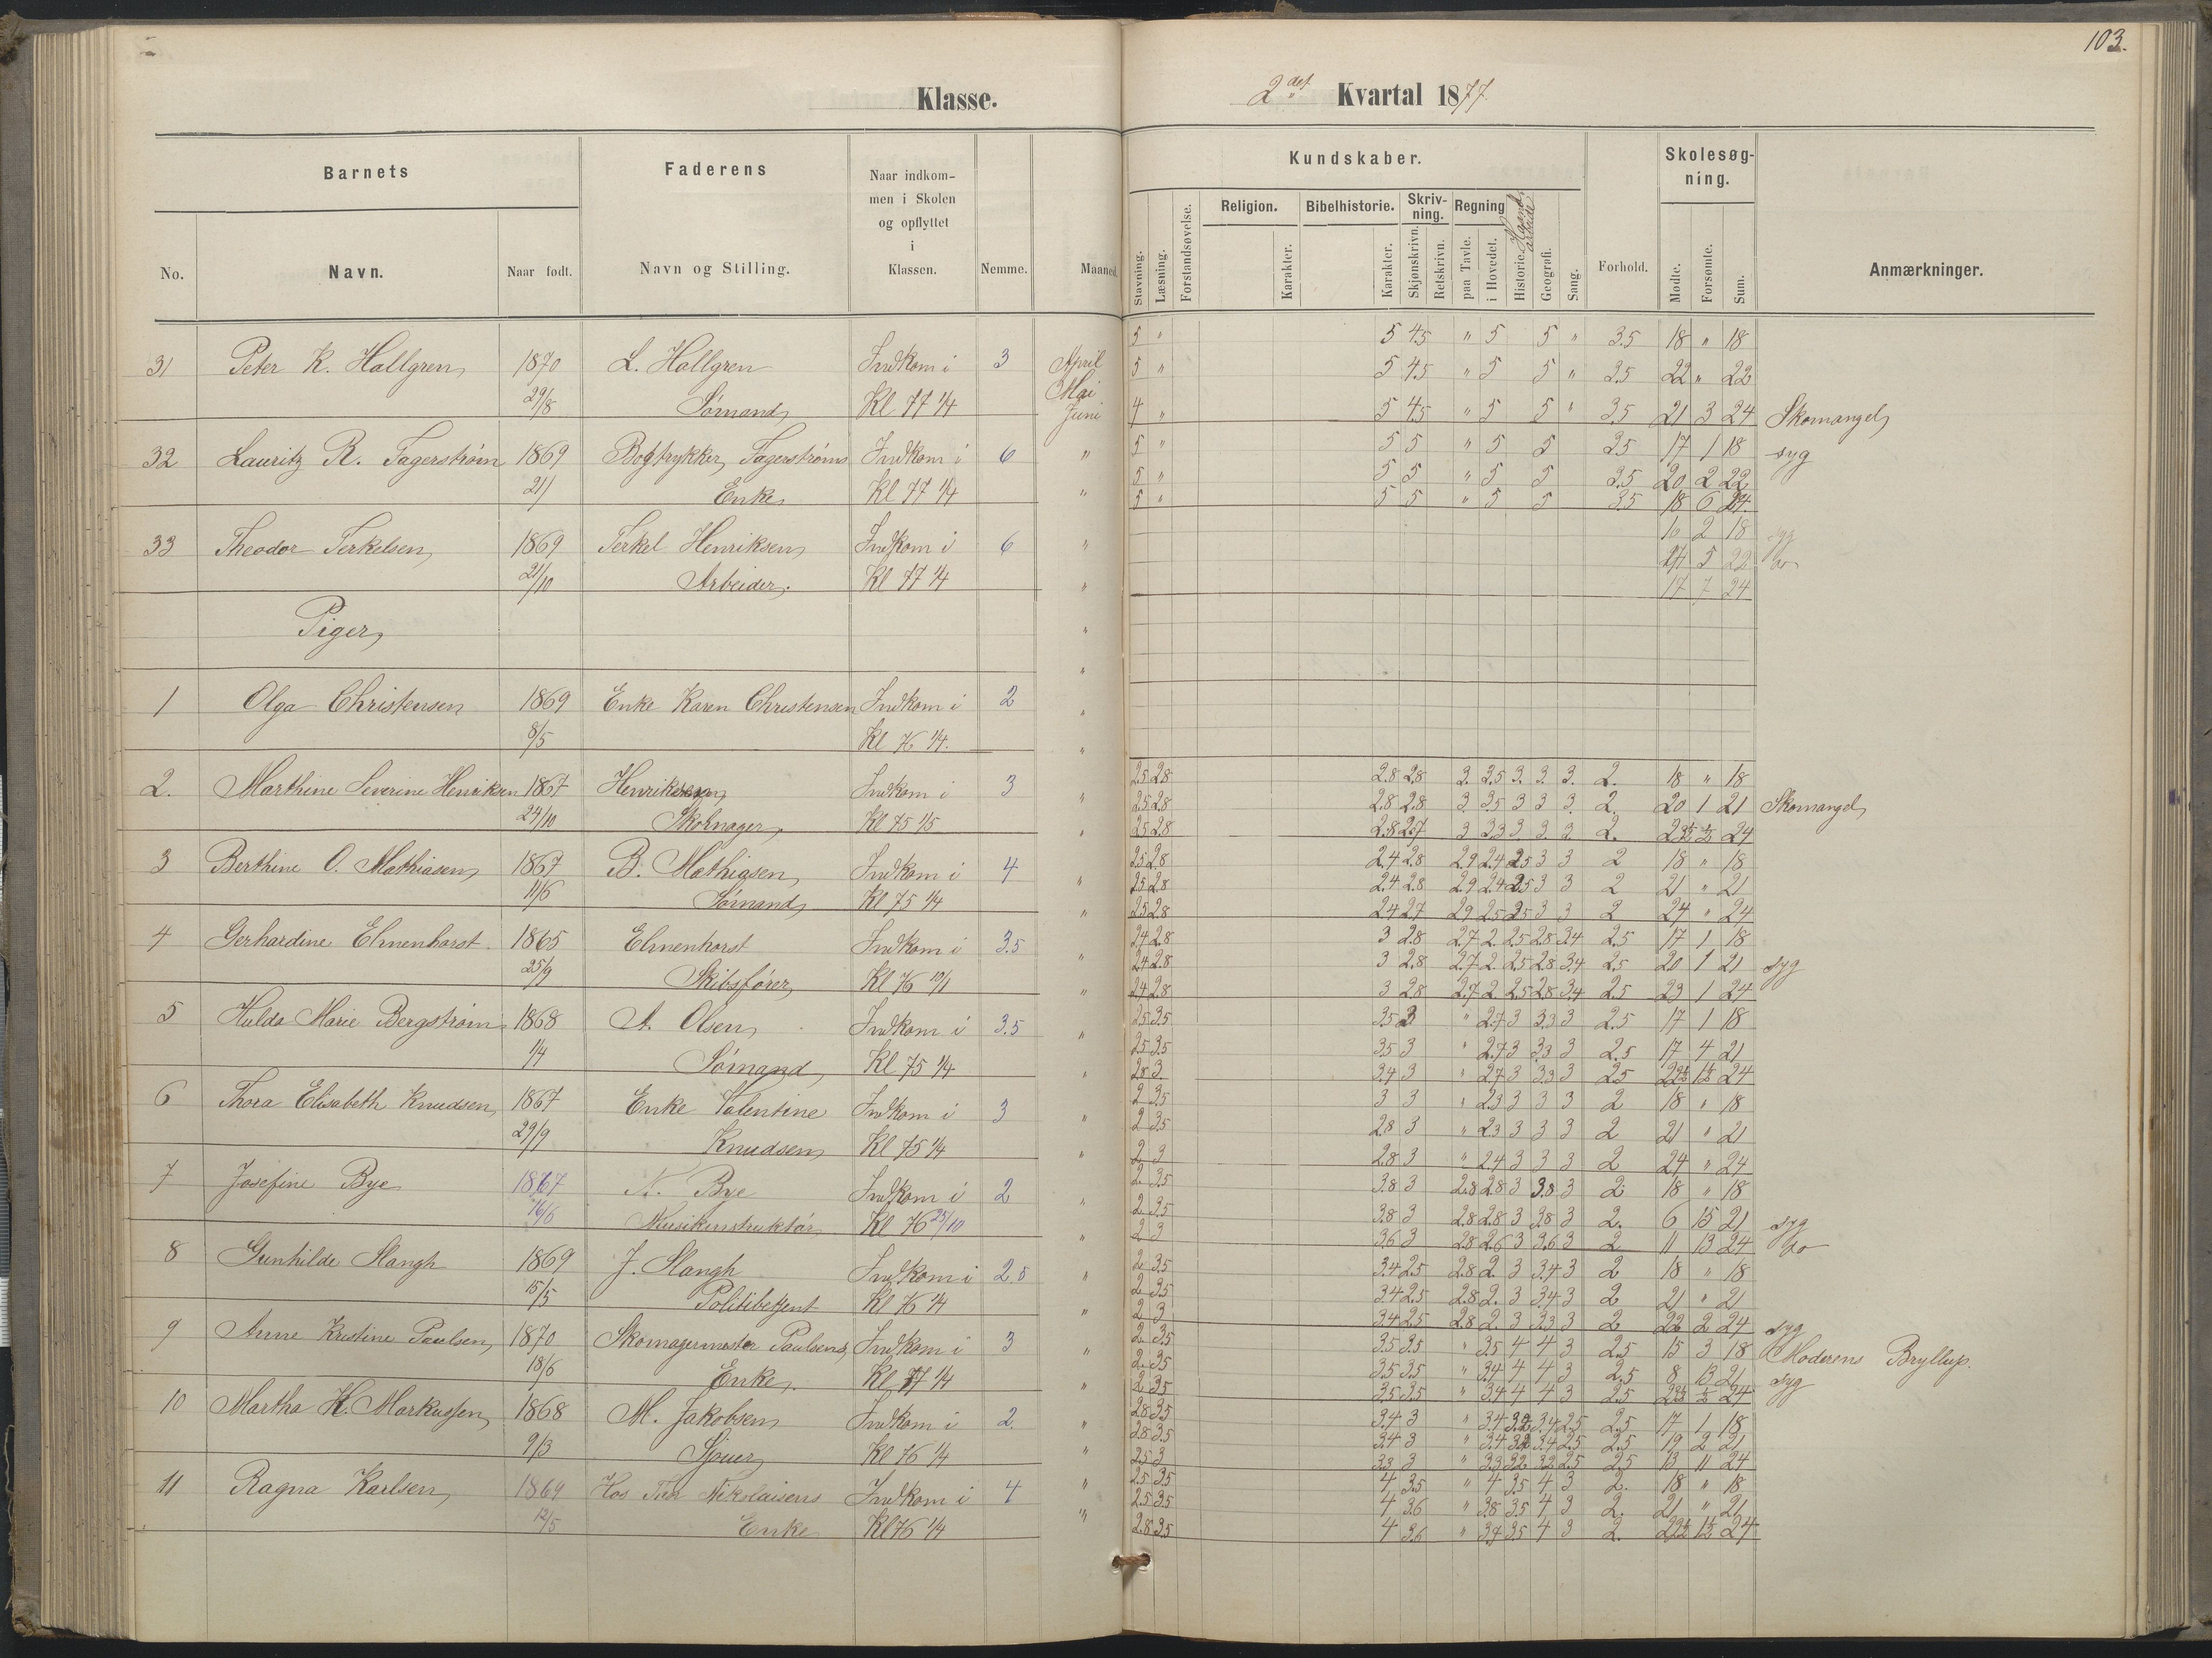 103.
Klasse.
2det Kvartal 1877.
Barnets
Faderens
Naar indkom-
men i Skolen
og opflyttet
i
Klassen.
No. Navn. Naar født. Navn og Stilling. Nemme. Maaned.
Kundskaber.
Skolesøg-
ning.
Religion. Bibelhistorie. Skriv-
ning. Regning Haand-
arbeide
Stavning. Læsning. Forstandsøvelse. Karakter. Karakter. Skjønskrivn. Retskrivn. paa Tavle. i Hovedet. Historie. Geografi. Sang. Forhold. Mødte. Forsømte. Sum. Anmærkninger.
31 Peter K. Hallgren 1870 L. Hallgren Indkom i 3 April
29/8 Sømand Kl 77 1/4 Mai
Juni
5 " 5 4.5 " 5 5 " 3.5 18 " 18
5 " 5 4.5 " 5 5 " 3.5 22 " 22
4 " 5 4.5 " 5 5 " 3.5 21 3 24 Skomangel
32 Lauritz R. Fagerstrøm 1869 Bogtrykker Fagerstrøms Indkom i 6 "
21/ Enke Kl 77 1/4 "
5 " 5 5 " 5 5 3.5 17 1 18 syg
5 " 5 5 " 5 5 3.5 20 2 22
5 " 5 5 " 5 5 3.5 18 6 24
33 Theodor Terkelsen 1869 Terkel Henriksen Indkom i 6 "
21/10 Arbeider. Kl 77 1/4 "
16 2 18 syg
17 5 22 do
17 7 24
Piger
1 Olga Christensen 1869 Enke Karen Christensen Indkom i 2 "
8/5 Kl 76 1/4. "
2. Marthine Severine Henriksen 1867 Henriksen Indkom i 3 "
24/10 Skomager Kl 75 1/5 "
2.5 2.8 2.8 2.8 3. 3.5 3. 3. 3. 2. 18 " 18
2.5 2.8 2.8 2.8 3 3.5 3 3 3. 2. 20 1 21 Skomangel
2.5 2.8 2.8 2.7 3 3.3 3 3 3 2. 23½ ½ 24
3 Berthine O. Mathiasen 1867 B. Mathiasen Indkom i 4 "
11/6 Sømand Kl 75 1/4 "
2.5 2.8 2.4 2.8 2.9 2.4 2.5 3 3 2 18 " 18
2.5 2.8 2.4 2.8 2.9 2.4 2.5 3 3 2 21 " 21
2.5 2.8 2.4 2.7 2.9 2.5 2.5 3 3 2 24 " 24
4 Gerhardine Elmenhorst 1865 Elmenhorst Indkom i 3.5 "
25/9 Skibsfører Kl 76 10/1 "
2.4 2.8 3 2.8 2.7 2. 2.5 2.8 3.4 2.5 17 1 18
2.4 2.8 3 2.8 2.7 2. 2.5 2.8 3.4 2.5 20 1 21 syg
2.4 2.8 3 2.8 2.7 2 2.5 2.8 3.4 2.5 23 1 24
5 Hulda Marie Bergstrøm 1868 A. Olsen Indkom i 3.5 "
1/4 Sømand Kl 75 1/4 "
2.5 3.5 3.5 3 " 2.7 3 3.3 3 2.5 17 1 18
2.5 3.5 3.5 3 " 2.7 3 3.3 3 2.5 17 4 21
2.8 3 3.4 3 " 2.7 3 3.3 3 2.5 22½ 1½ 24
6 Thora Elisabeth Knudsen 1867 Enke Valentine Indkom i 3 "
29/9 Knudsen Kl 75 1/4 "
2 3.5 3 3 " 2.3 3 3 3 2 18 " 18
2 3.5 2.8 3 " 2.3 3 3 3 2 21 " 21
2 3 2.8 3 " 2.4 3 3 3 2 24 " 24
7 Josefine Bye 1867 N. Bye Indkom i 2 "
16/6 Musikinstruktør Kl 76 25/10 "
2 3.5 3.8 3 2.8 2.8 3 3.8 3 2 18 " 18
2 3.5 3.8 3 2.8 2.8 3 3.8 3 2. 6 15 21 syg
2 3 3.6 3 2.8 2.6 3 3.6 3 2 11 13 24 do
8 Gunhilde Slangh 1869 J. Slangh Indkom i 2.5 "
15/5 Politibetjent Kl 76 1/4 "
2 3.5 3.4 2.5 2.8 2. 3 3.4 3 2 18 " 18
2 3.5 3.4 2.5 2.8 2. 3 3.4 3 2 21 " 21
2 3 3.4 2.5 2.8 2 3 3.3 3 2 22 2 24 syg
9 Anne Kristine Paulsen 1870 Skomagermester Paulsens Indkom i 3 "
18/6 Enke. Kl 77 1/4 "
2 3.5 3.5 3.5 " 3.5 4 4 3 2.5 15 3 18 Moderens Bryllup.
2 3.5 3.5 3.5 " 3.4 4 4 3 2.5 8 13 21 syg
2 3.5 3.5 3.5 " 3.4 4 4 3 2.5 23½ ½ 24
10 Martha K. Markussen 1868 M. Jakobsen Indkom i 2. "
9/3 Sjouer Kl 76 1/4 "
2.8 3.5 3.4 3 " 3.4 3.2 3.4 2.5 2.5 17 1 18
2.8 3.5 3.4 3 " 3.4 3.2 3.4 2.5 2.5 19 2 21
2.5 3 3.3 3 " 3.3 3.2 3.2 2.5 2.5 13 11 24
11 Ragna Karlsen 1869 Hos Nikolaisens Indkom i 4 "
12/5 Enke Kl 76 1/4 "
2.5 3.5 4 3.5 " 4 3.5 4 3 2. 18 " 18
2.5 3.5 4 3.6 " 3.8 3.5 4 3 2. 21 " 21
2.8 3.5 4 3.6 " 3.7 3.5 4 3 2. 22½ 1½ 24